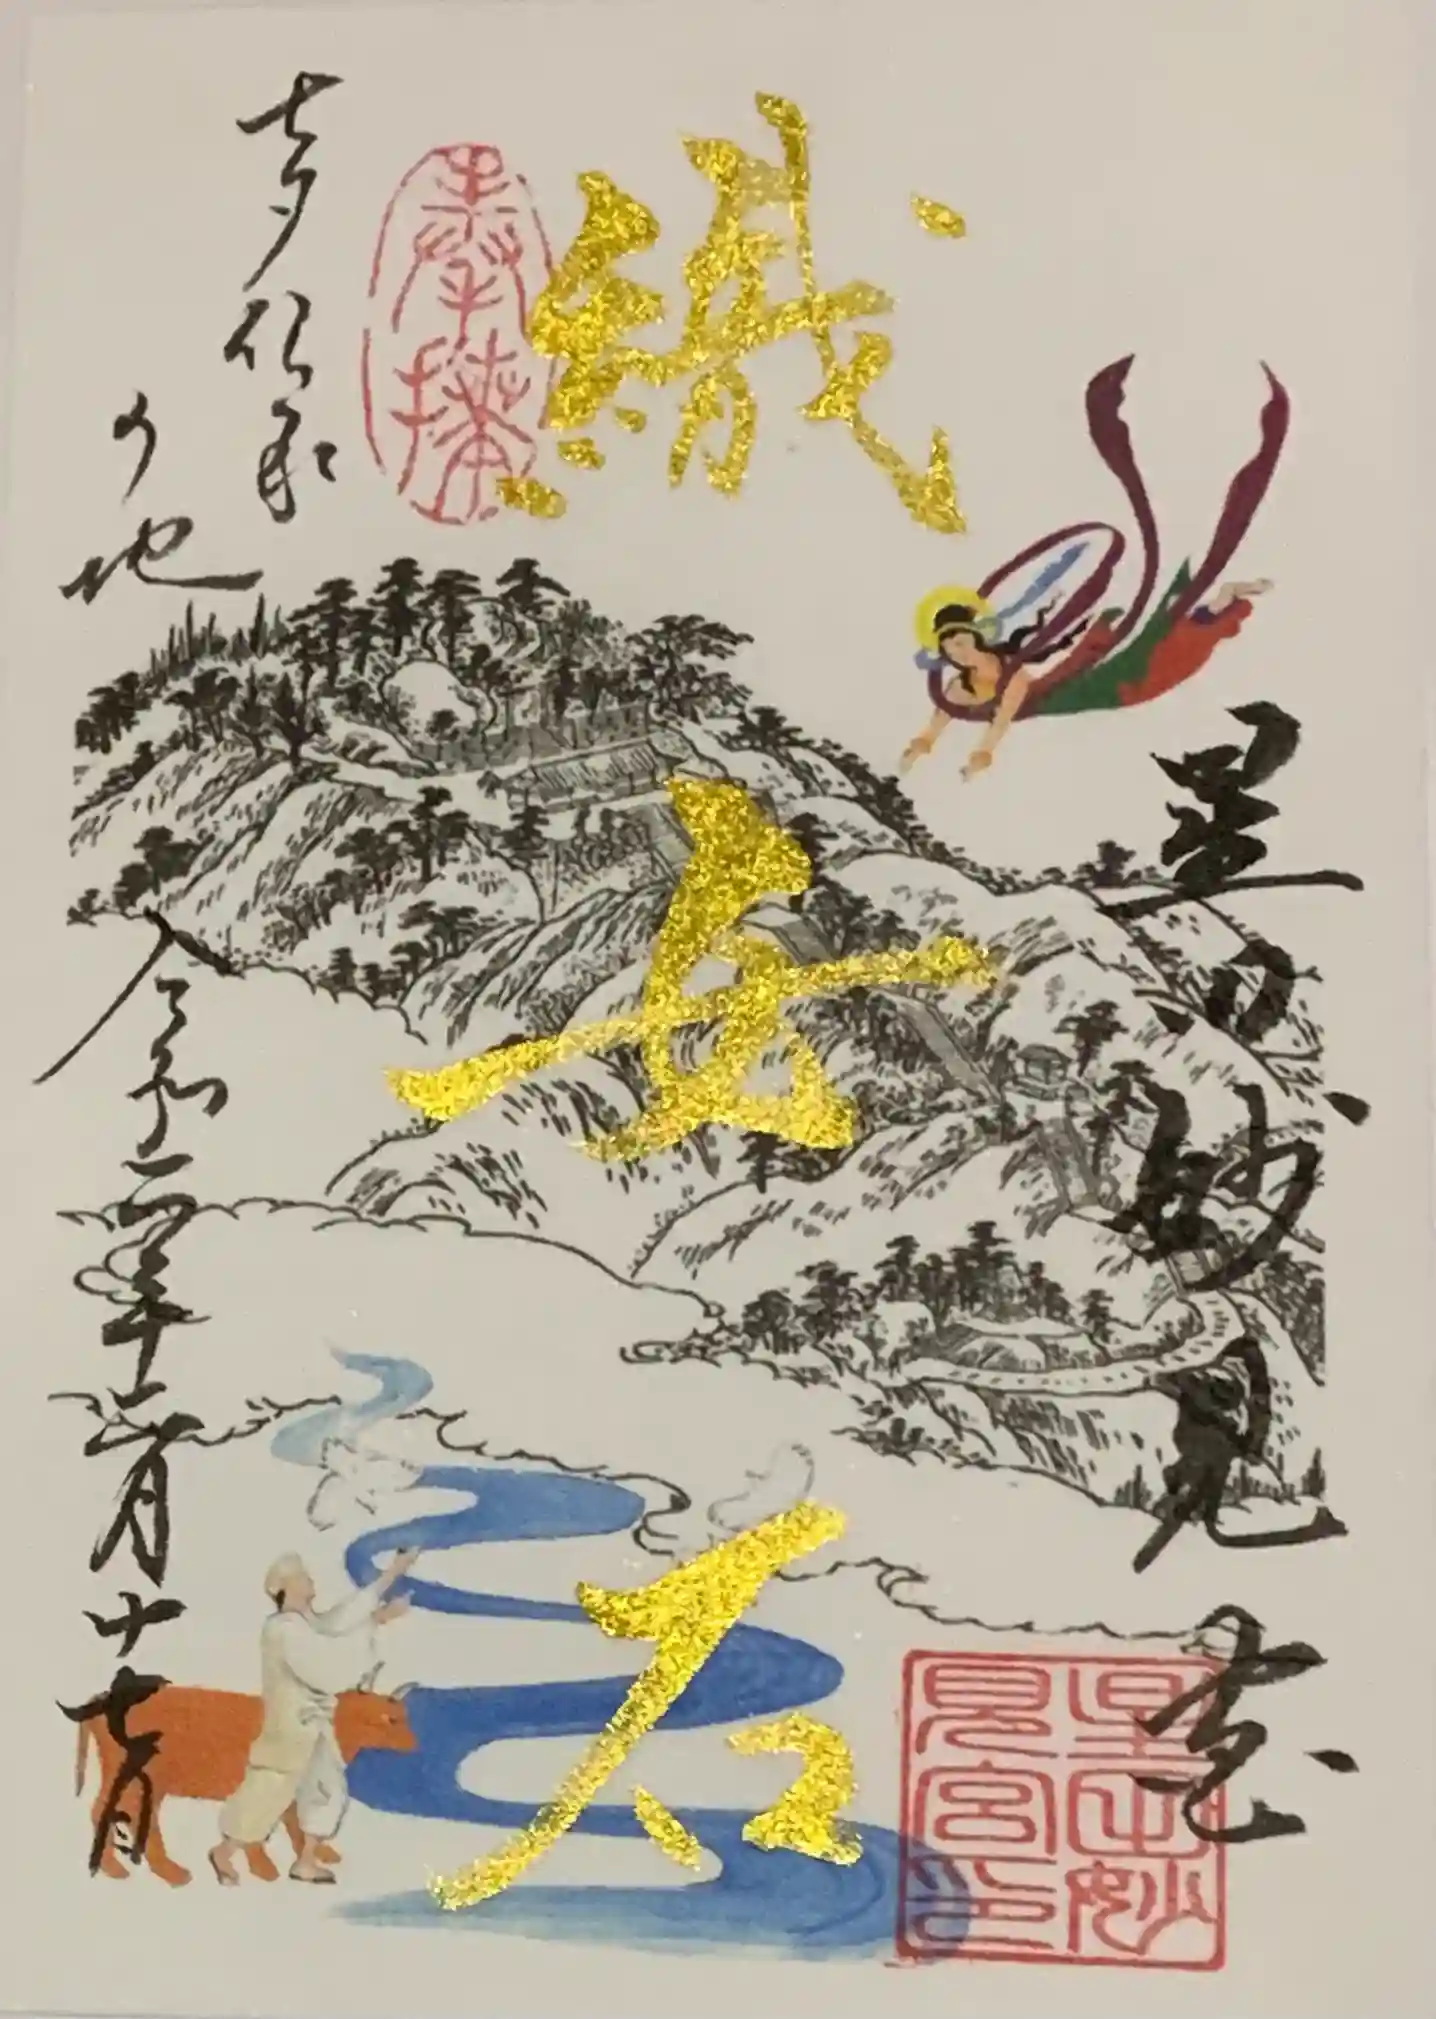 星田妙見宮
星田妙
見宮印
織女石
奉拝
七夕伝承
の地
令和二年十二月十七日